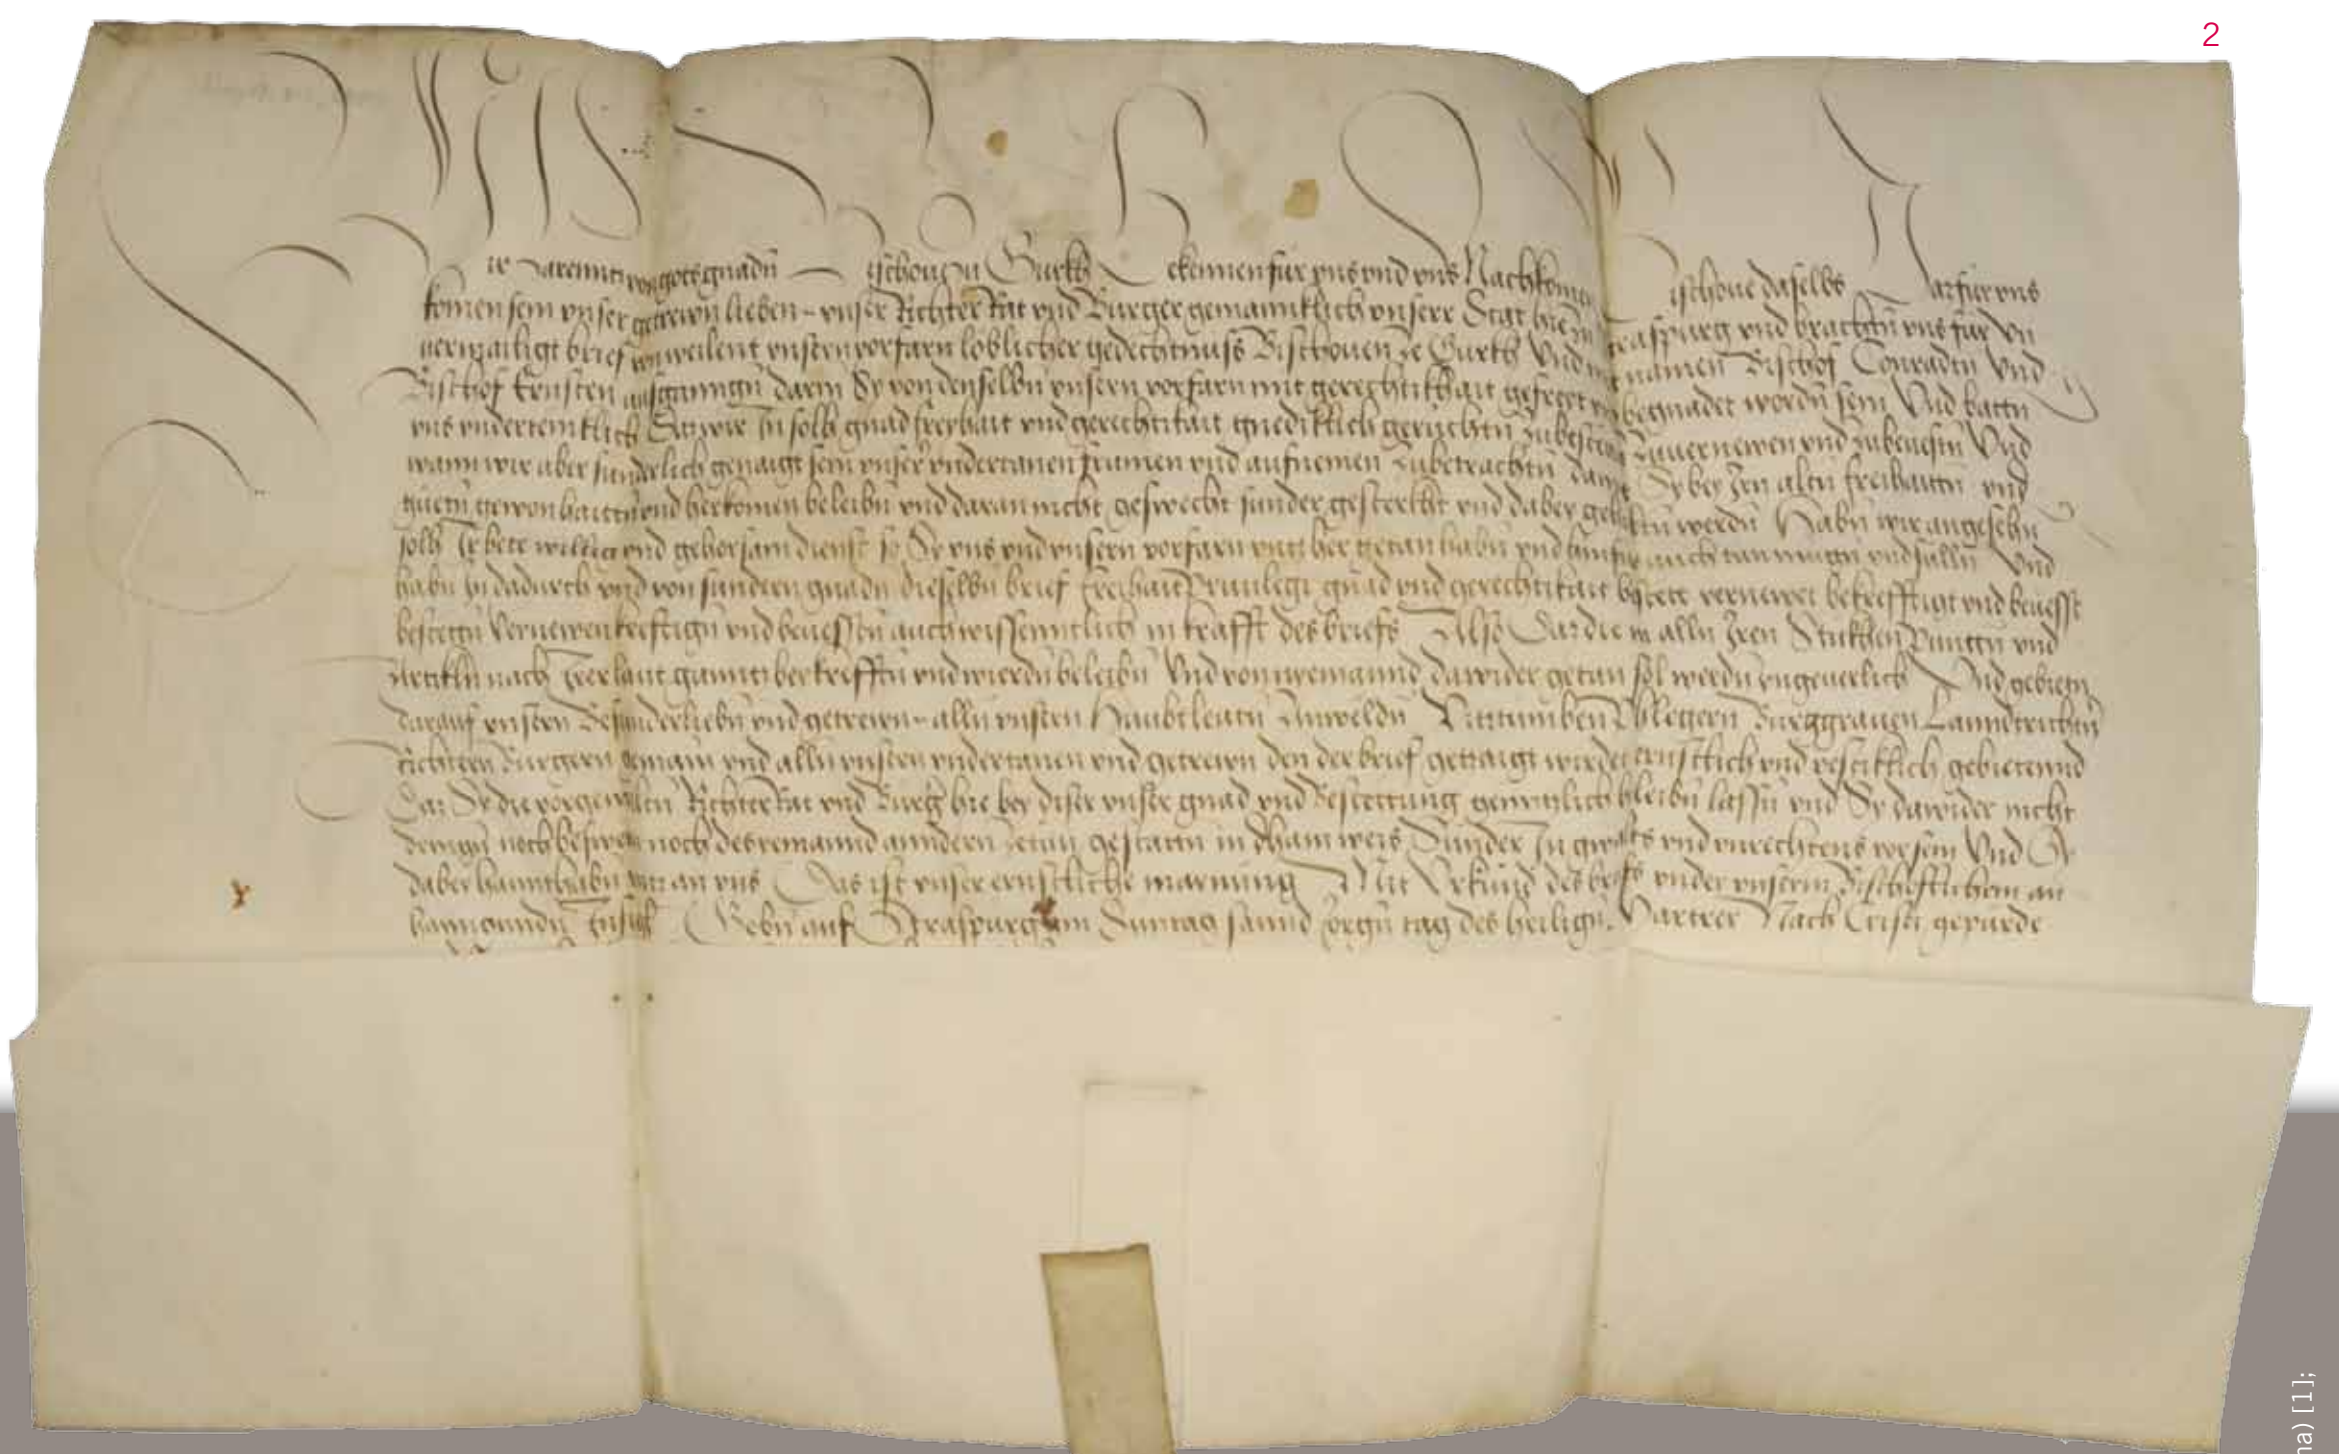 2
von gots gnadn Bischoue zu Gurkh Bekennen fur vns vnd vns Nachkomen Bischoue daselbs Dar fur vns
komen sein vnser getrewn lieben vnser Richter Rat vnd Burger gemainklich vnserr Stat hie zu Straspurg vnd brachtn vns fur
brief von weilent vnsern vorfarn loblicher gedechtnuss Bischouen ze Gurkh Vnd mit namen Bischof Conradn Vnd
Bischof Ernsten darin Sy von denselbn vnsern vorfarn mit gerechtikhait gefreyt vnd begnadet wordn sein Vnd batn
vns vndertenklich Daz wir In solh gnad freyhait vnd gerechtikait gnediklich geruchtn zubestetn Zuuernewen vnd zubeuestn Vnd
wann wir aber sunderlich genaigt sein vnser vndertanen frumen vnd aufnemen zubetrachtn damit Sy bey Iren altn freihaittn vnd
guetn gewonhaittn vnd herkomen beleibn vnd daran nicht geswecht sunder gesterkht vnd dabey gehaltn werdn Habn wir angesehn
solh Ir bete willig vnd gehorsam dienst so Sy vns vnd vnsern vorfarn getan habn vnd auch tun mugn vnd sulln Vnd
habn In dadurch vnd von sundern gnadn dieselbn brief freihait Priuilegi gnad vnd gerechtikait bestett vernewet bekrefftigt vnd beuesst
bestettn Vernewen kreftign vnd beuessten auch wissenntlich in krafft des briefs Also Daz die in alln Iren Stukhen Puntn vnd
Artikln nach Irer laut ganntz bey krefftn vnd wierdn beleibn Vnd von nyemannd dawider getan sol werdn vngeuerlich Vnd gebietn
darauf vnsern Besunderliebn vnd getrewn alln vnsern Haubtleutn Anweldn Vitztumben Phlegern Burggrauen Lanndrichtern
Richtern Burgern gemain vnd alln vnsern vndertanen vnd getrewn den der brief getzaigt wirdet ernstlich vnd vestiklich gebietennd
Daz Sy die vorgenantn Richter Rat vnd Burger hie bey diser vnser gnad vnd Bestettung genntzlich bleibn lassn vnd Sy dawider nicht
noch des yemannd anndern zetun gestattn in dhain weis Sunder In gwalts vnd vnrechtens vor sein Vnd Sy
dabey hannthabn vntz an vns Das ist vnser ernstliche maynung Mit Vrkund des briefs vnder vnserm Bischoflichem an
hanngundn Insigl Gebn auf Straspurg am Suntag sannd Jorgn tag des heilign Martrer Nach Cristi gepurde
na) [1];